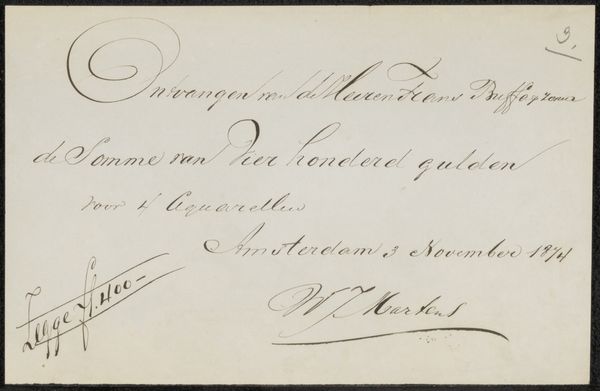 3.
Ontvangen van de Heeren Frans Buffa & zonen
de Somme van Vier honderd gulden
voor 4 Aquarellen
Amsterdam 3 November 1874
Zegge fl. 400-
W J Martens